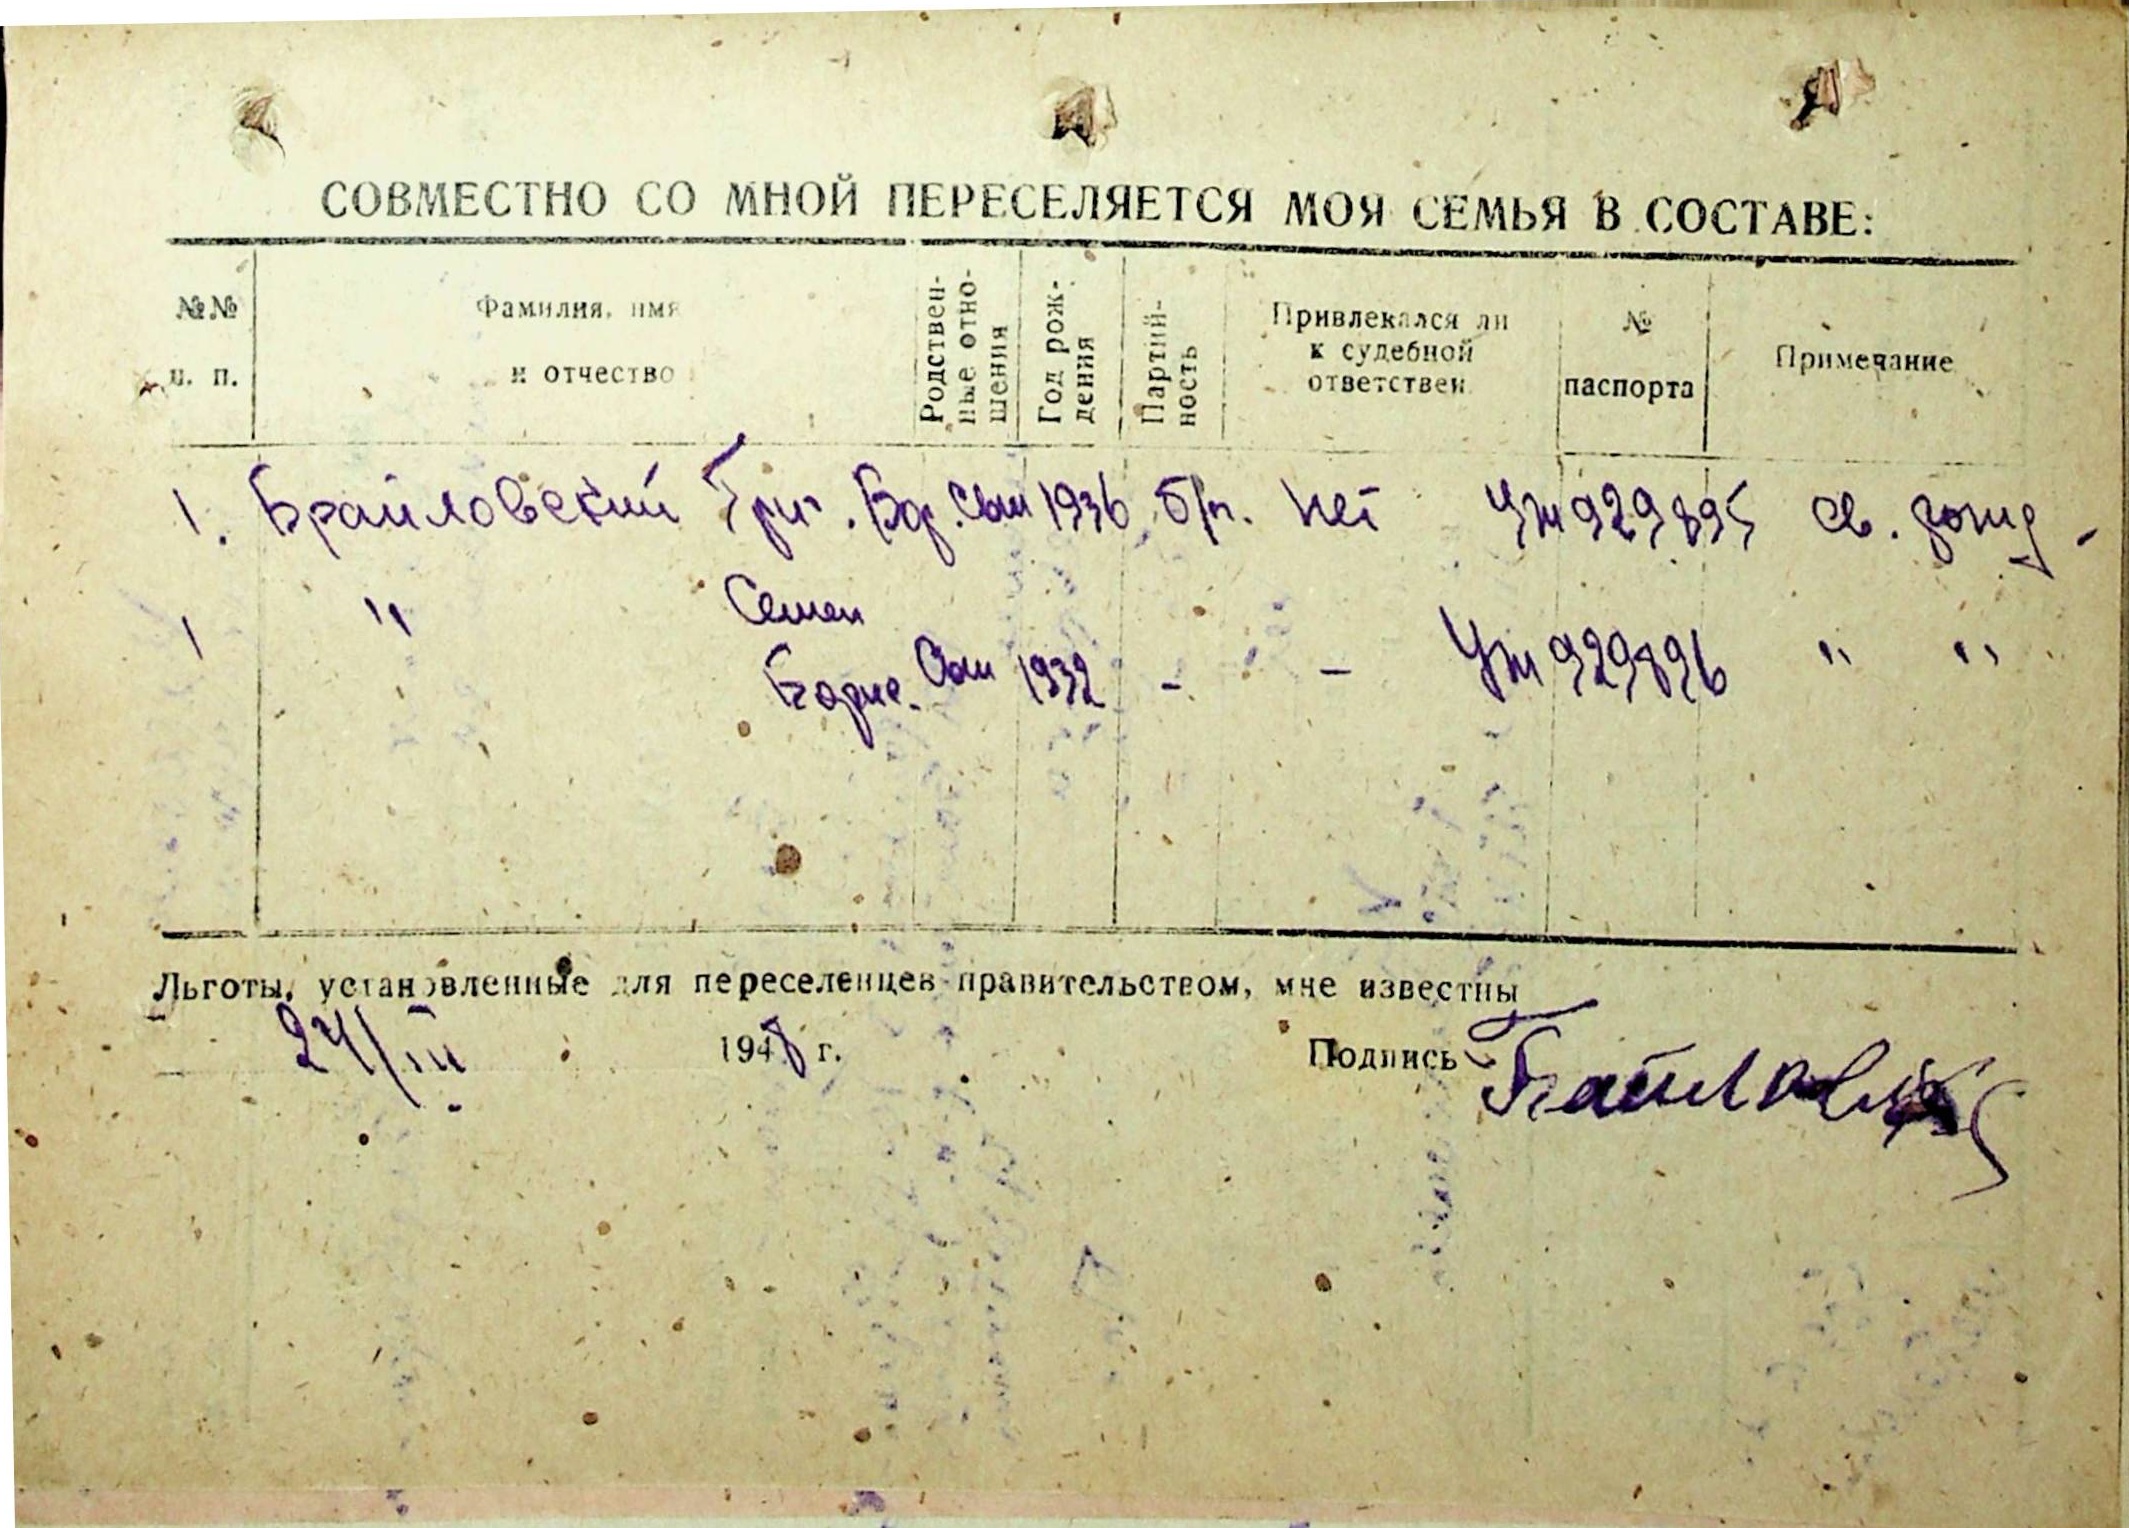 СОВМЕСТНО СО МНОЙ ПЕРЕСЕЛЯЕТСЯ МОЯ СЕМЬЯ В СОСТАВЕ:
№№ п. п.
Фамилия, имя и отчество
Родствен-ные отно-шения
Год рож-дения
Партий-ность
Привлекался ли к судебной ответствен
№ паспорта
Примечание
1. Брайловский Григ. Бор. Сын 1936 б/п. нет УЖ 929895 св. рожд-
1 " Семен
Борис. Сын 1932 - - УЖ 929896 " "
Льготы, установленные для переселенцев правительством, мне известны
24/III 1948 г. Подпись